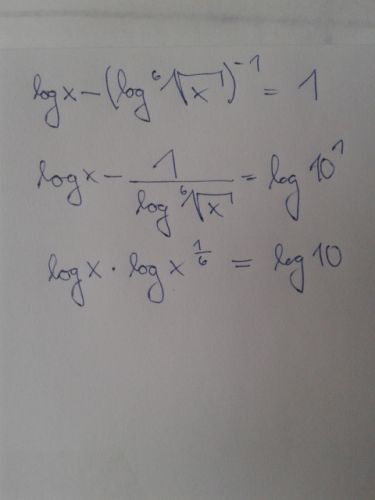 log x − (log ⁶√x)⁻¹ = 1
log x − 1/(log ⁶√x) = log 10¹
log x · log x^(1/6) = log 10